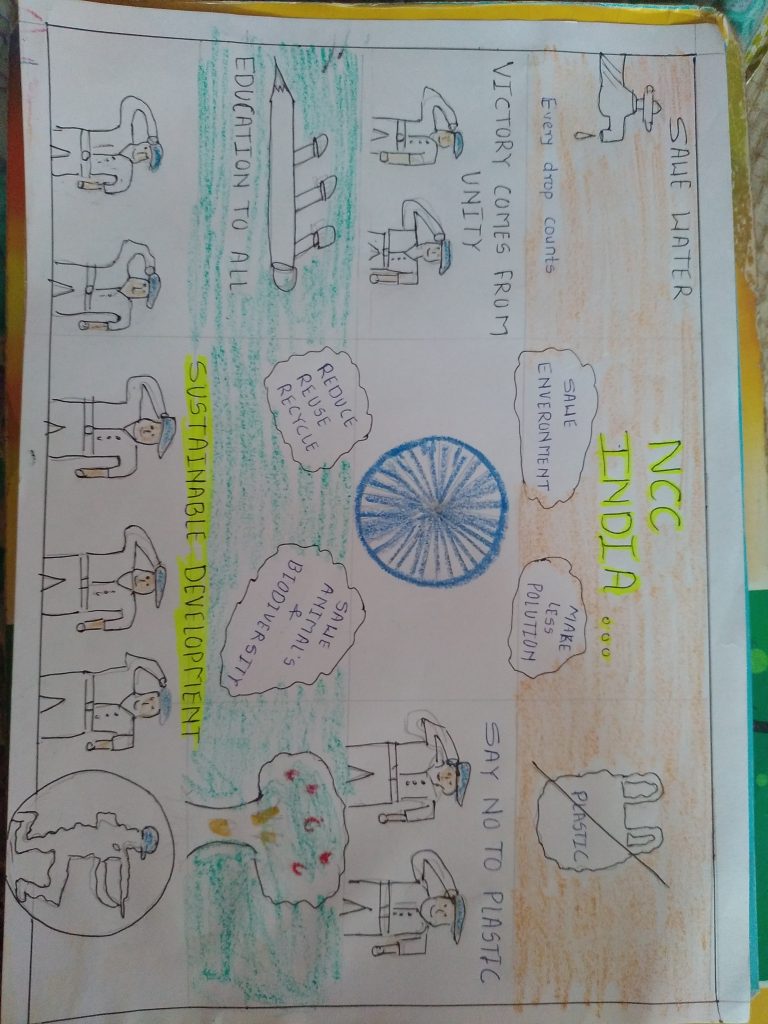 SAWE WATER
Every drop counts
NCC
INDIA...
SAWE
ENVERONMENT
MAKE
LESS
POLUTION
PLASTIC
VICTORY COMES FROM
UNITY
SAY NO TO PLASTIC
EDUCATION TO ALL
REDUCE
REUSE
RECYCLE
SAWE
ANIMAL'S
&
BIODIVERSITY
SUSTAINABLE DEVELOPMENT